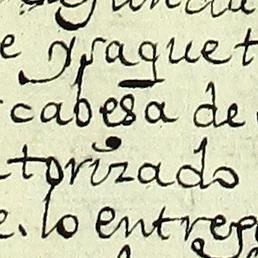 e ysaquet
cabesa de
torizado
e. lo entrega